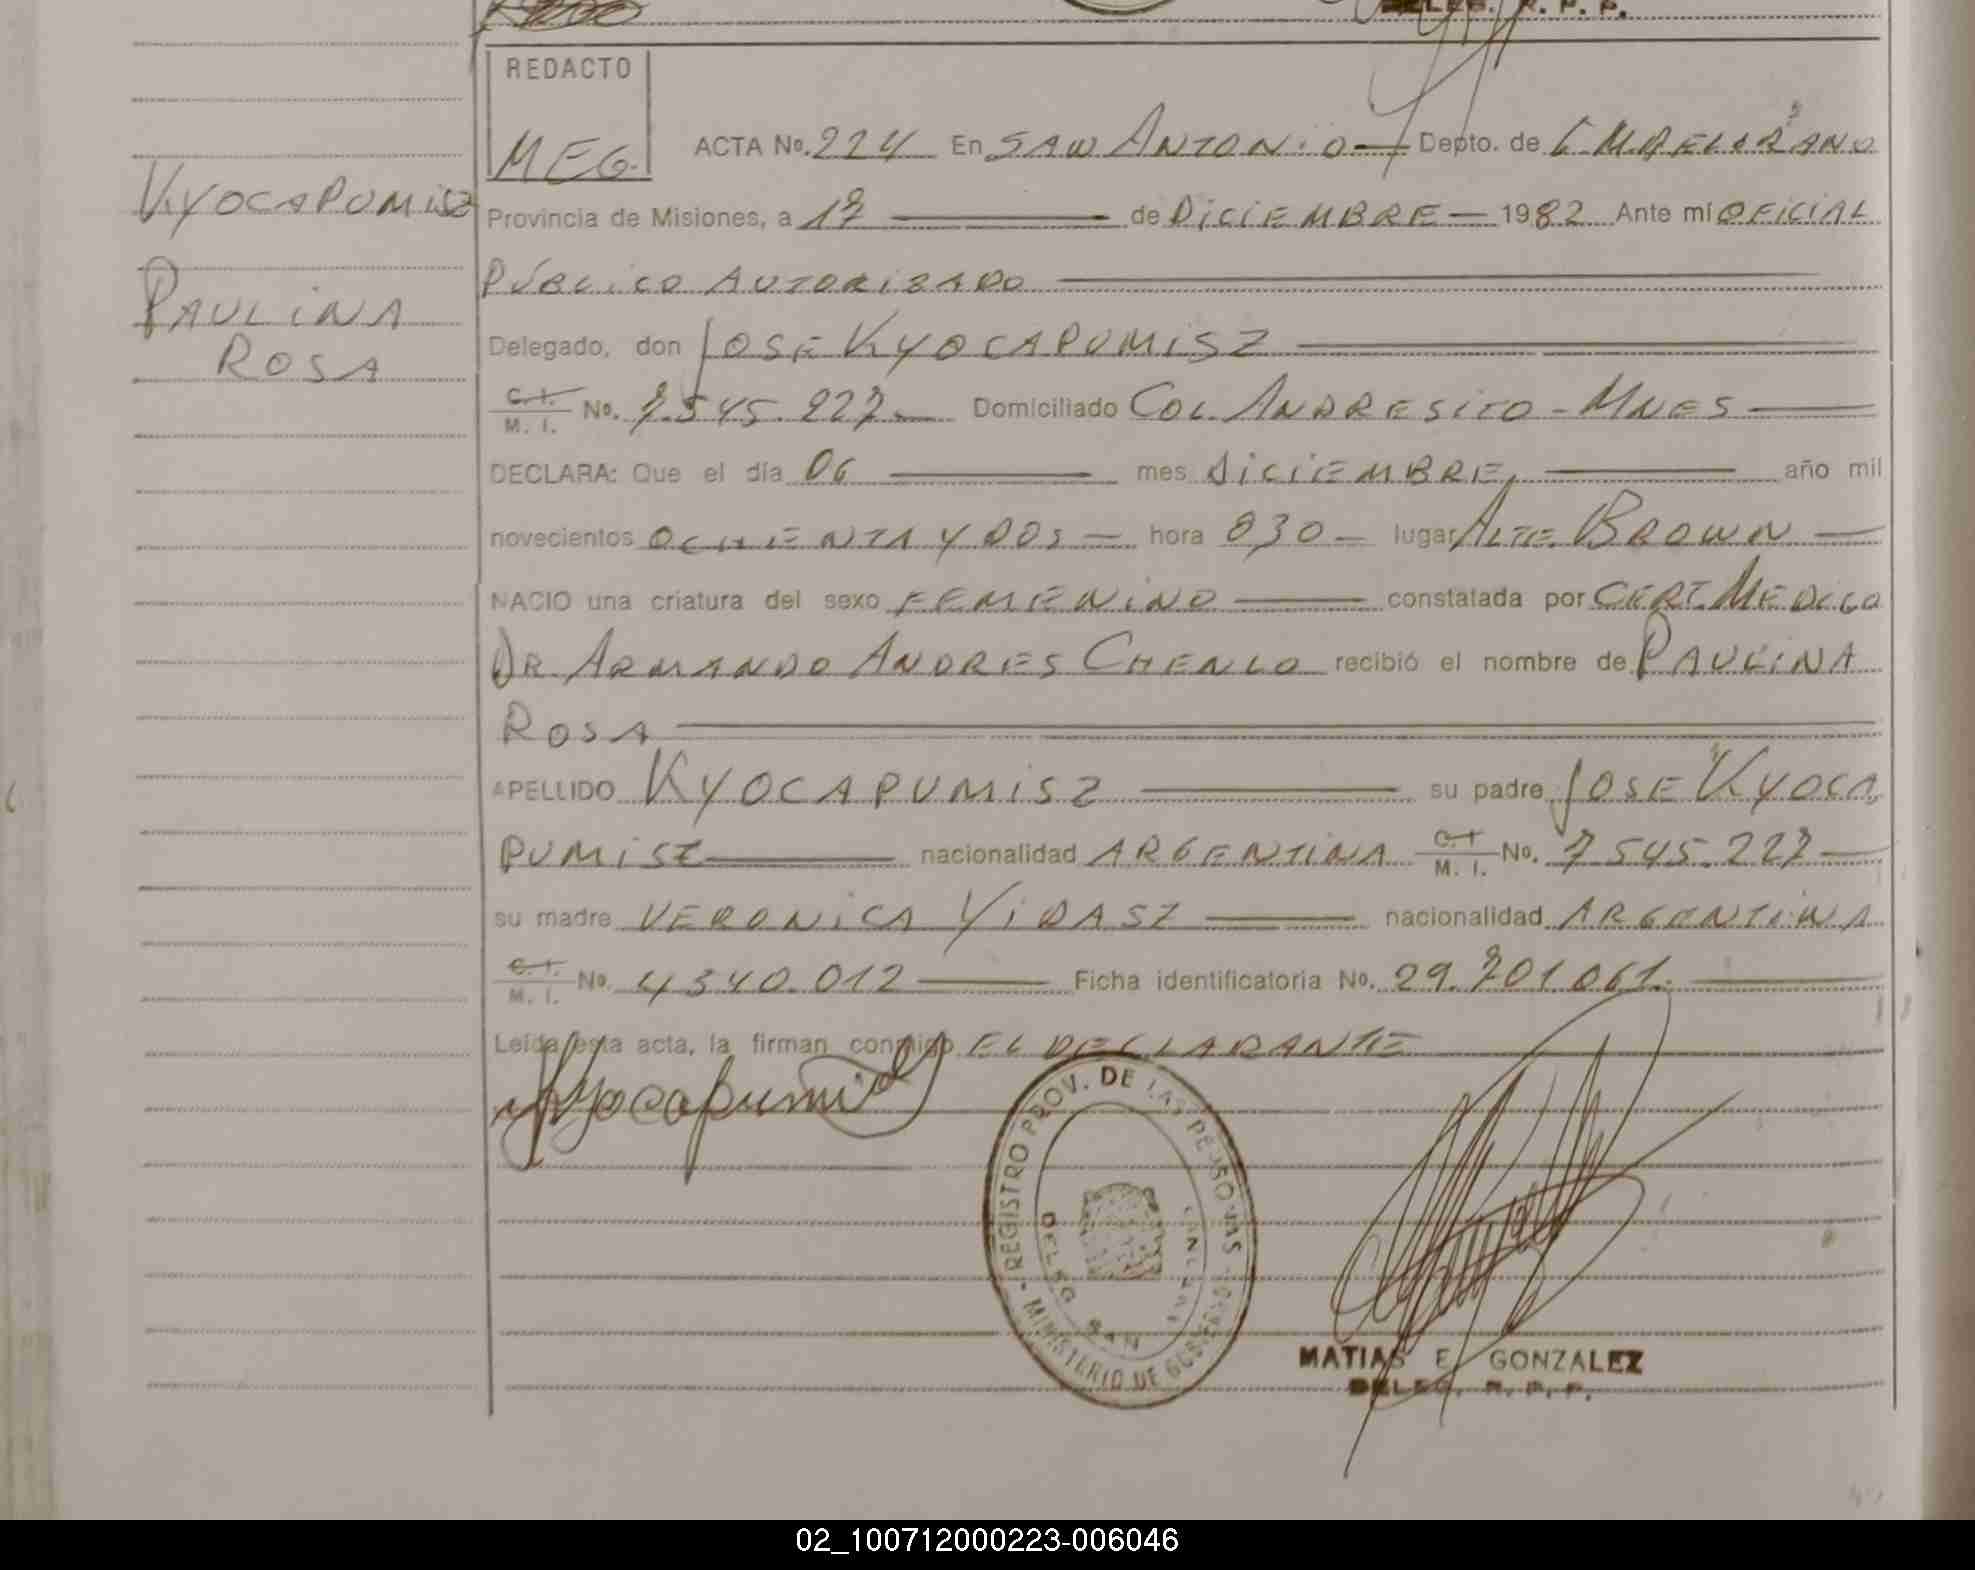 DELEG. R. P. P.
REDACTO
MEG.
ACTA No. 224 En SAN ANTONIO Depto. de G M BELGRANO
KYOCAPUMISZ
Provincia de Misiones, a 17 de DiCiEMBRE 1982 Ante mí OFICIAL
PÚBLICO AUTORIZADO
PAULINA
ROSA
Delegado, don JOSE KYOCAPUMISZ
C. I. / M. I. No. 7.545.227 Domiciliado COL. ANDRESITO - MNES
DECLARA: Que el día 06 mes DICIEMBRE, año mil
novecientos OCHENTA Y DOS hora 830 lugar ALTE. BROWN
NACIO una criatura del sexo FEMENINO constatada por CERT. MEDICO
DR. ARMANDO ANDRES CHENLO recibió el nombre de PAULINA
ROSA
APELLIDO KYOCAPUMISZ su padre JOSE KYOCA
PUMISZ nacionalidad ARGENTINA C. I. / M. I. No. 7.545.227
su madre VERONICA VIDASZ nacionalidad ARGENTINA
C. I. / M. I. No. 4340.012 Ficha identificatoria No. 29.701.061.
Leída esta acta, la firman conmigo EL DECLARANTE
Kyocapumisz
REGISTRO PROV. DE LAS PERSONAS
MINISTERIO DE GOBIERNO
DELEG. SAN
MATIAS E. GONZALEZ
DELEG. R. P. P.
02_100712000223-006046